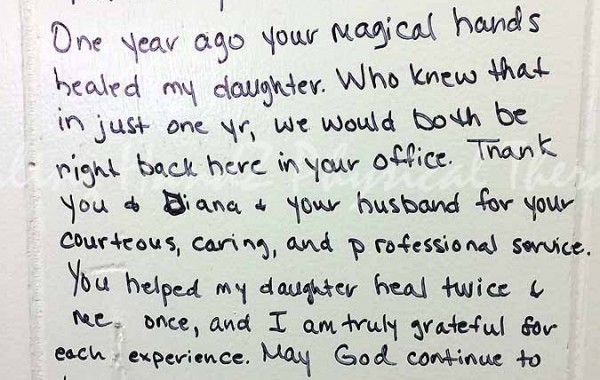 One year ago your magical hands
healed my daughter. Who knew that
in just one yr, we would both be
right back here in your office. Thank
you & Diana & your husband for your
courteous, caring, and professional service.
You helped my daughter heal twice &
me once, and I am truly grateful for
each experience. May God continue to